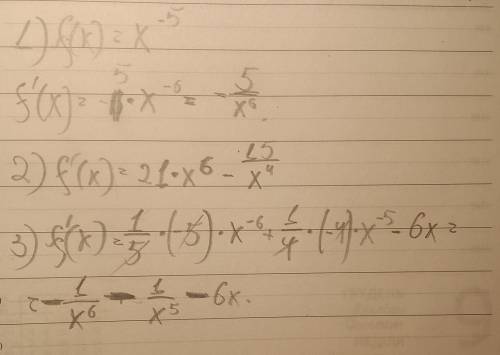 1) f(x) = x^-5
f'(x) = -5 · x^-6 = - 5/x^6.
2) f'(x) = 21 · x^6 - 15/x^4
3) f'(x) = 1/5 · (-5) · x^-6 + 1/4 · (-4) · x^-5 - 6x =
= - 1/x^6 - 1/x^5 - 6x.